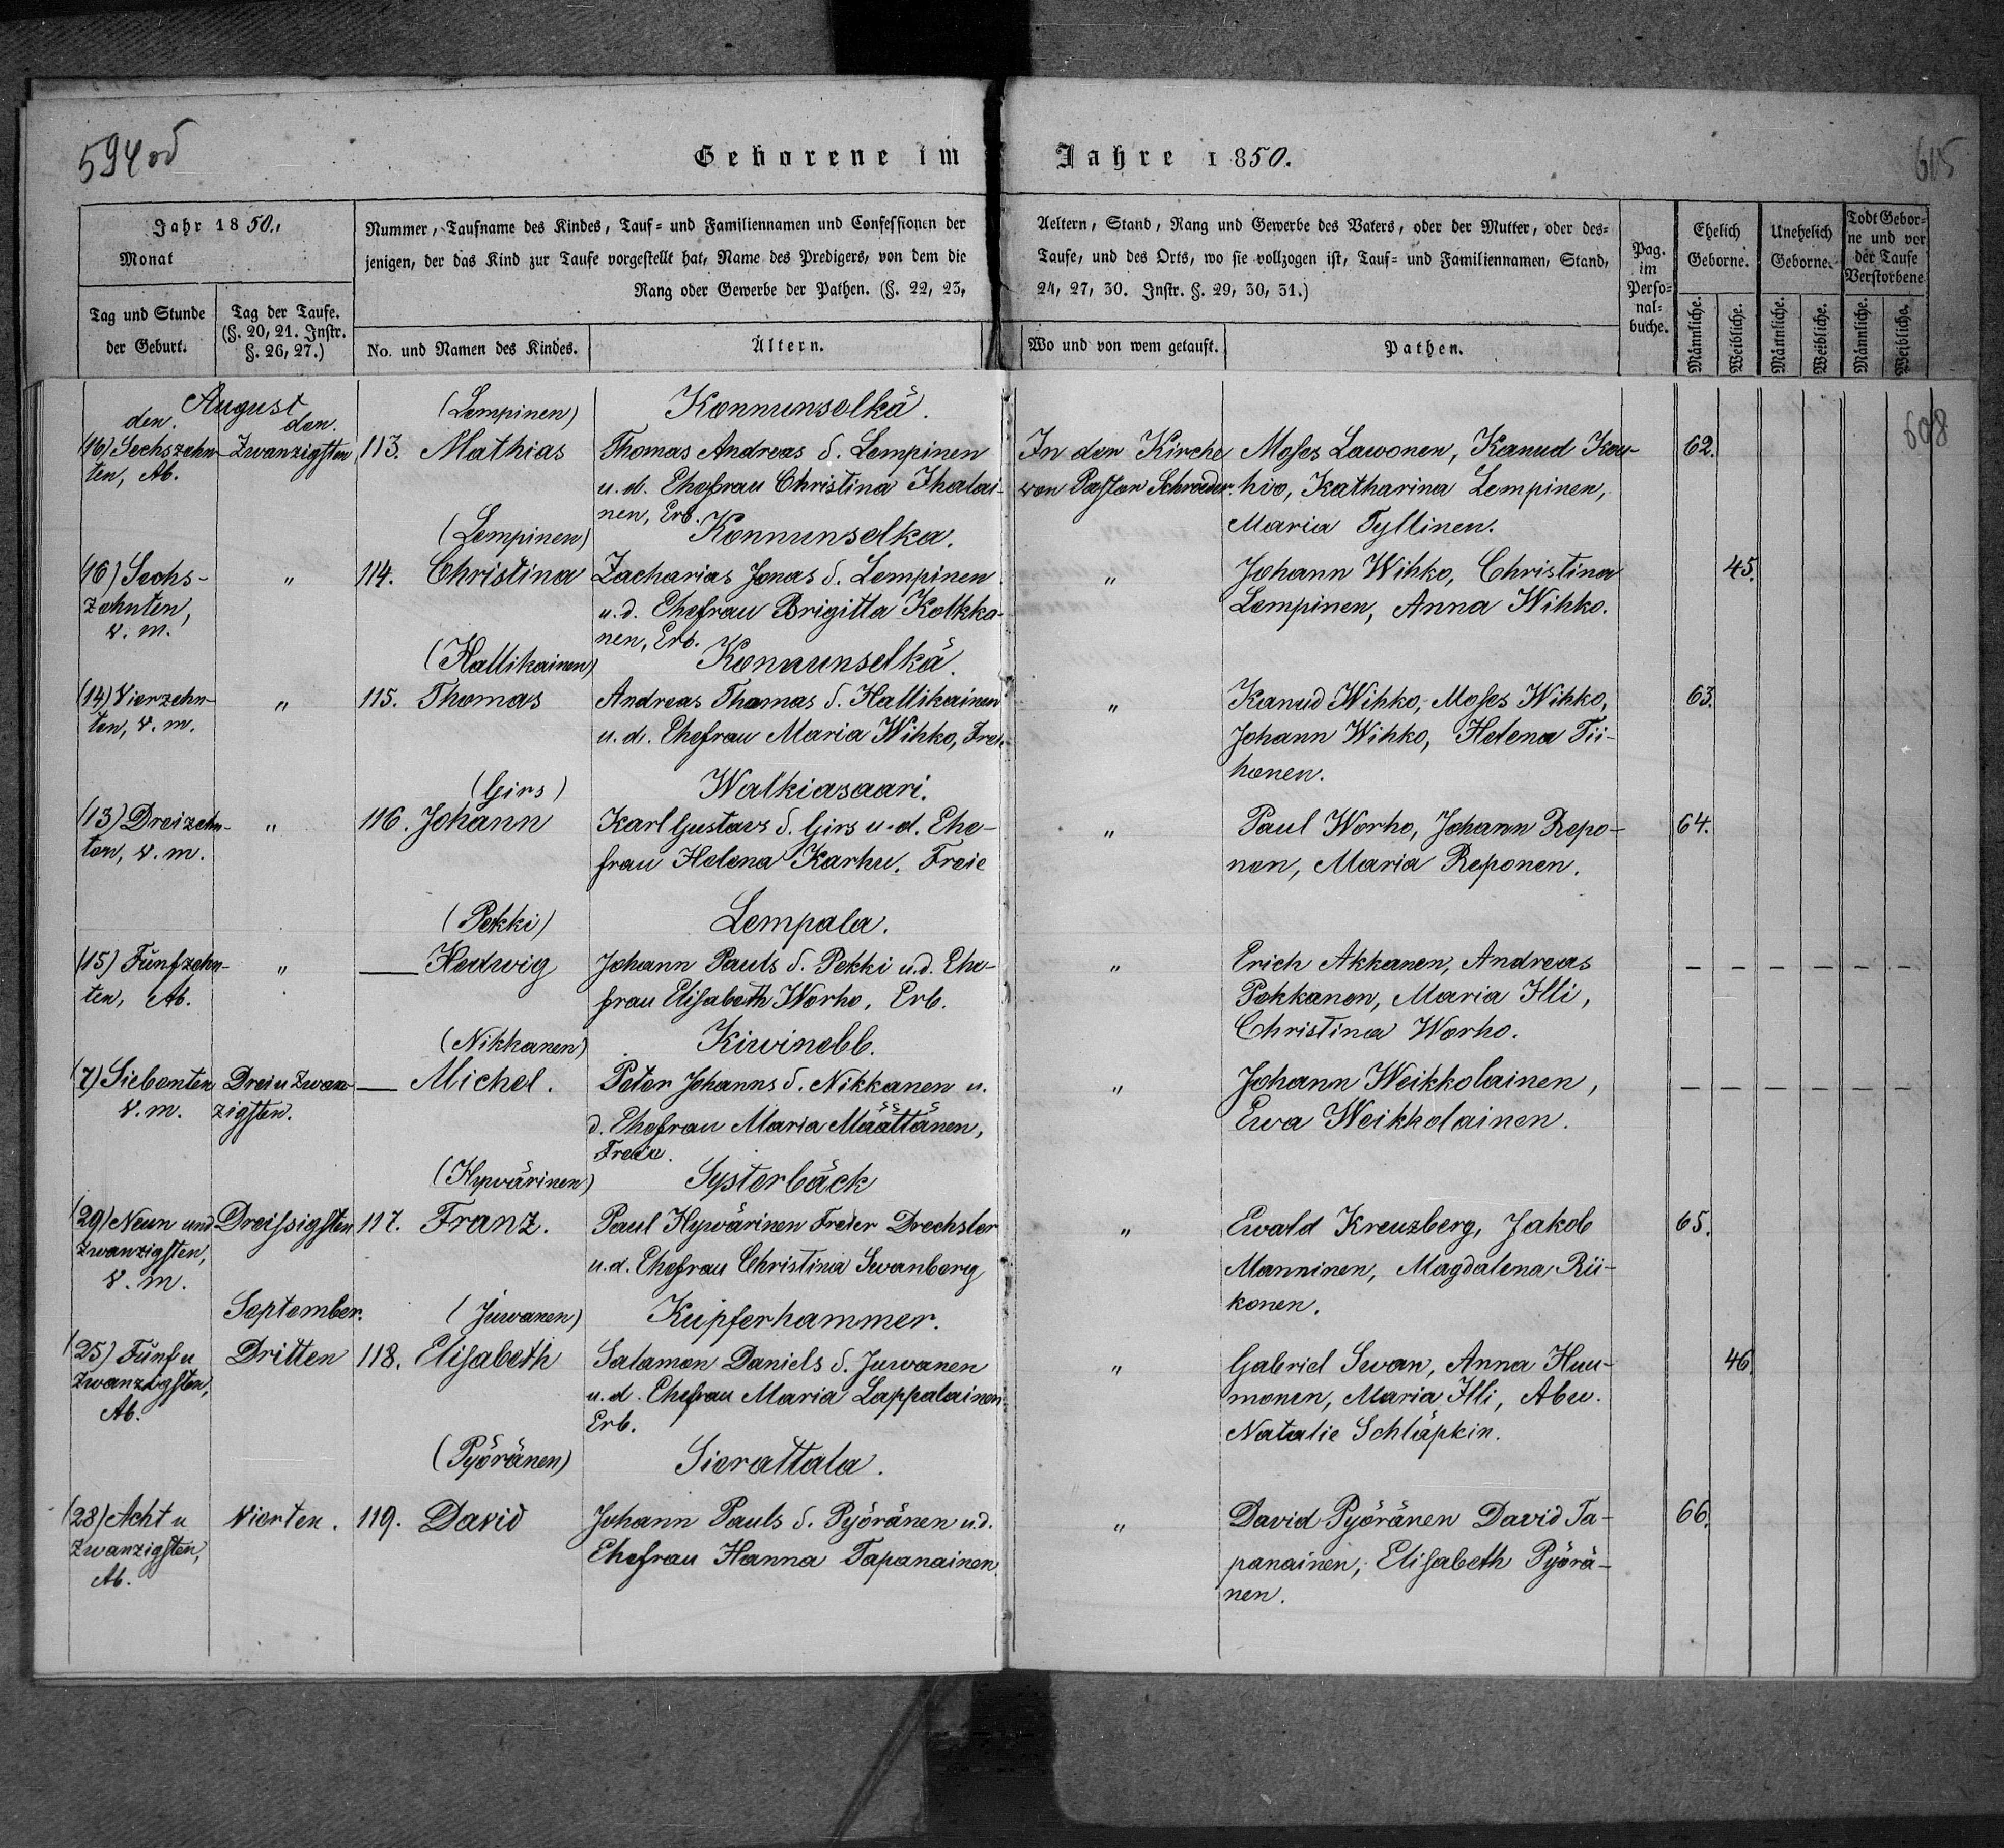 594 od
Geborene im Jahre 1850.
615
Jahr 1850.,
Monat
Tag und Stunde der Geburt.
Tag der Taufe. (§. 20, 21. Instr. §. 26, 27.)
Nummer, Taufname des Kindes, Tauf- und Familiennamen und Confessionen der
jenigen, der das Kind zur Taufe vorgestellt hat, Name des Predigers, von dem die
Rang oder Gewerbe der Pathen. (§. 22, 23,
No. und Namen des Kindes.
Ältern.
Aeltern, Stand, Rang und Gewerbe des Vaters, oder der Mutter, oder des-
Taufe, und des Orts, wo sie vollzogen ist, Tauf- und Familiennamen, Stand,
24, 27, 30. Instr. §. 29, 30, 31.)
Wo und von wem getauft.
Pathen.
Pag. im Perso- nal- buche.
Ehelich Geborne.
Unehelich Geborne.
Todt Gebor- ne und vor der Taufe Verstorbene
Männliche. Weibliche. Männliche. Weibliche. Männliche. Weibliche.
608
August
den. den.
(Lempinen) Konnunselkä.
(16) Sechszehn- Zwanzigsten 113. Mathias Thomas Andreas S. Lempinen In der Kirche Moses Lawonen, Kanud Kau- 62.
ten, Ab. u. d. Ehefrau Christina Ihalai- von Pastor Schroeder. hio, Katharina Lempinen,
nen, Erb. Maria Tyllinen.
(Lempinen) Konnunselka.
(16) Sechs- " 114. Christina Zacharias Jonas S. Lempinen " Johann Wihko, Christina 45.
zehnten, u. d. Ehefrau Brigitta Kolkko- Lempinen, Anna Wihko.
V. m. nen, Erb.
(Hallikainen) Konnunselkä.
(14) Vierzehn- " 115. Thomas Andreas Thomas S. Hallikainen " Kanud Wihko, Moses Wihko, 63.
ten, V. m. u. d. Ehefrau Maria Wihko, Frei. Johann Wihko, Helena Tii-
honen.
(Girs) Walkiasaari.
(13) Dreizehn- " 116. Johann Karl Gustavs S. Girs u. d. Ehe- " Paul Worho, Johann Repo- 64.
ten, V. m. frau Helena Karhu. Freie nen, Maria Reponen.
(Pekki) Lempala.
(15) Fünfzehn- " — Hedwig Johann Pauls S. Pekki u. d. Ehe- " Erich Akkanen, Andreas – – – – – –
ten, Ab. frau Elisabeth Worho, Erb. Pekkanen, Maria Illi,
Christina Worho.
(Nikkanen) Kiwinebb.
(7) Siebenten Drei u Zwan- — Michel. Peter Johanns S. Nikkanen u. " Johann Weikkolainen, – – – – – –
V. m. zigsten. d. Ehefrau Maria Määttänen, Ewa Weikkolainen.
Freie.
(Hywärinen) Systerbäck
(29) Neun und Dreissigsten 117. Franz. Paul Hywärinen Freier Drechsler " Ewald Kreuzberg, Jakob 65.
Zwanzigsten, u. d. Ehefrau Christina Swanberg Manninen, Magdalena Rii-
V. m. konen.
September. (Juwanen) Kupferhammer.
(25) Fünf u Dritten 118. Elisabeth Salamon Daniels S. Juwanen " Gabriel Swan, Anna Huu- 46.
Zwanzigsten, u. d. Ehefrau Maria Lappalainen monen, Maria Illi, Abw.
Ab. Erb. Natalie Schläpkin.
(Pyöränen) Sierattala.
(28) Acht u Vierten. 119. David Johann Pauls S. Pyöränen u. d. " David Pyöränen David Ta- 66.
Zwanzigsten, Ehefrau Hanna Tapanainen. panainen, Elisabeth Pyörä-
Ab. nen.